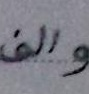 والف